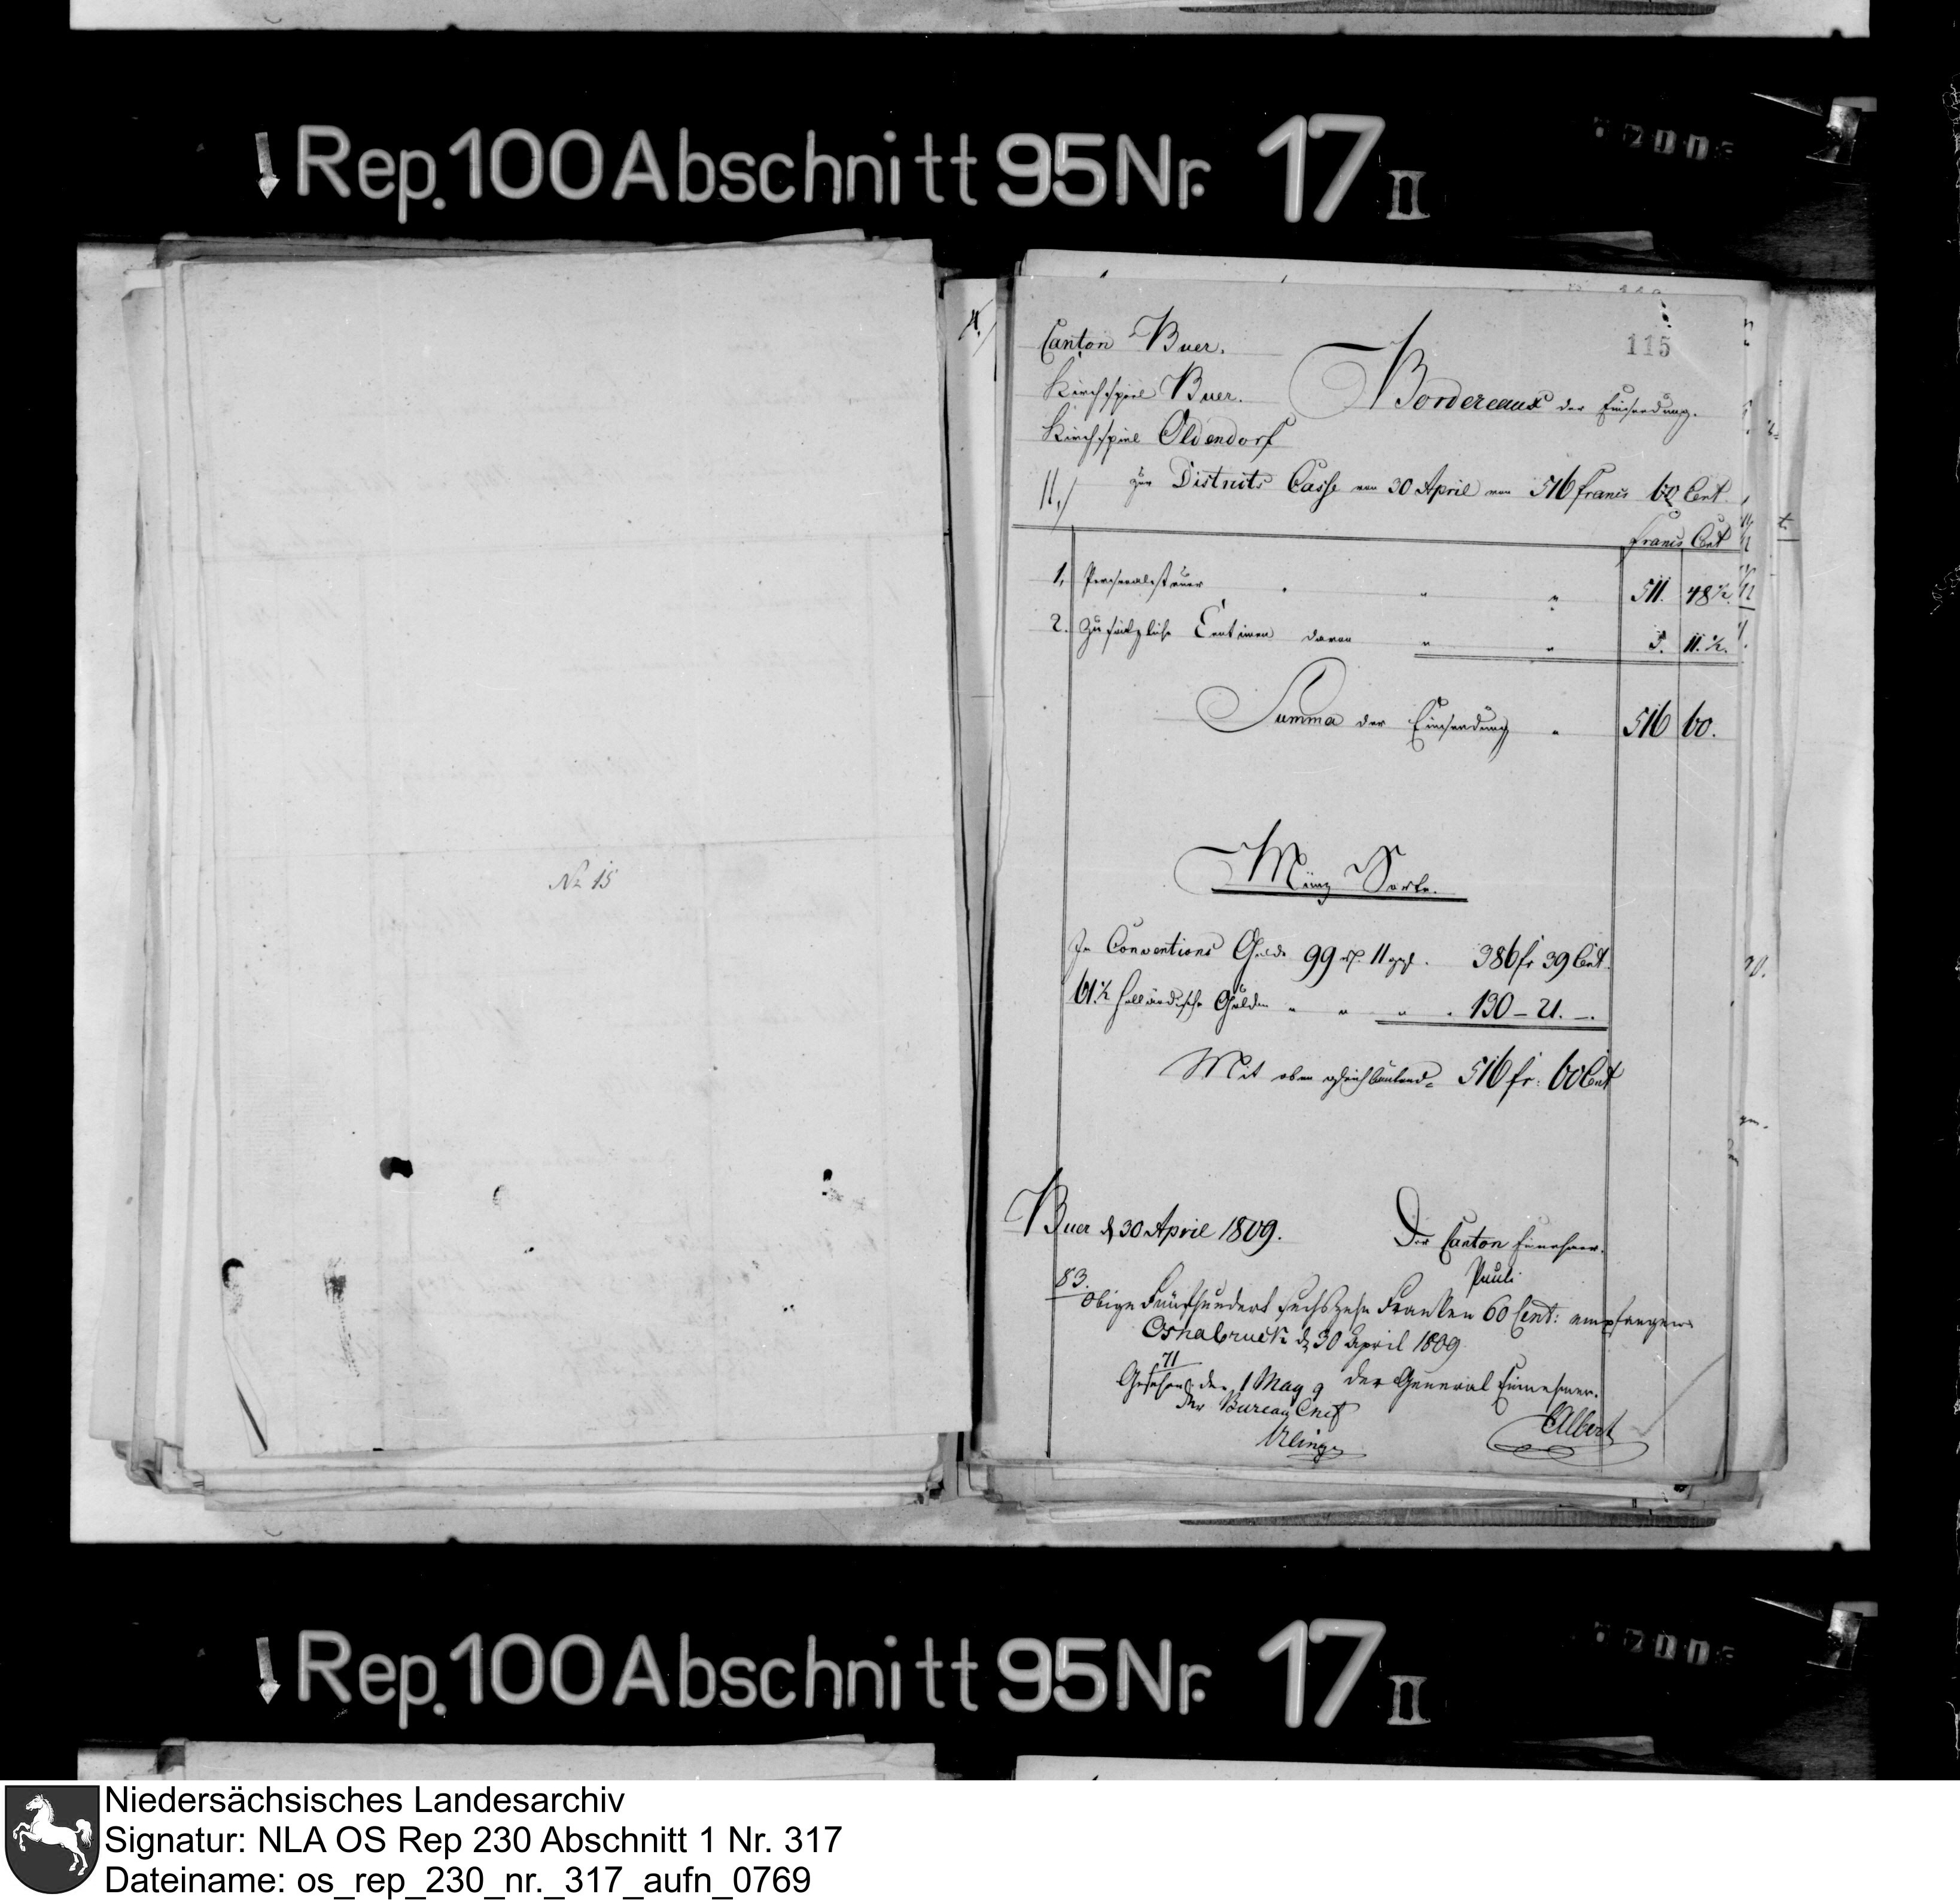 Rep. 100 Abschnitt 95 Nr. 17 II
No 15
115
Canton Buer.
Kirchspiel Buer.
Kirchspiel Oldendorf
Bordereaux der Einsendung.
11.) zur Districts Casse von 30 April von 516 francs 60 Cent.
francs Cent
1, Personalsteuer " " 511. 48 1/2.
2. Zusätzliche Centimen davon " " 5. 11. 1/2.
Summa der Einsendung " 516 60.
Münz Sorte.
In Conventions Gelde 99 rt. 11 ggl. 386 fr 39 Cent.
61 1/2 holländische Gulden " " " " 130 – 21. –.
Mit oben gleichlautend = 516 fr: 60 Cent
Buer d 30 April 1809.
Der Canton Einnehmer.
Pauli
83.
Obige Fünfhundert sechszehn Franken 60 Cent: empfangen
Osnabruck d 30 April 1809
71
Gesehen den 1 May 9 der General Einnehmer.
Der Bureau Chef
Albert
Rep. 100 Abschnitt 95 Nr. 17 II
Niedersächsisches Landesarchiv
Signatur: NLA OS Rep 230 Abschnitt 1 Nr. 317
Dateiname: os_rep_230_nr._317_aufn_0769